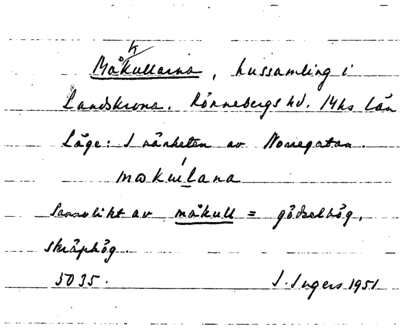 Måkullarna, hussamling i
Landskrona. Rönnebergs hd. Mhs län
Läge: I närheten av Norregatan.
Sannolikt av måkull = gödselhög,
skräphög.
5035. I. Ingers 1951